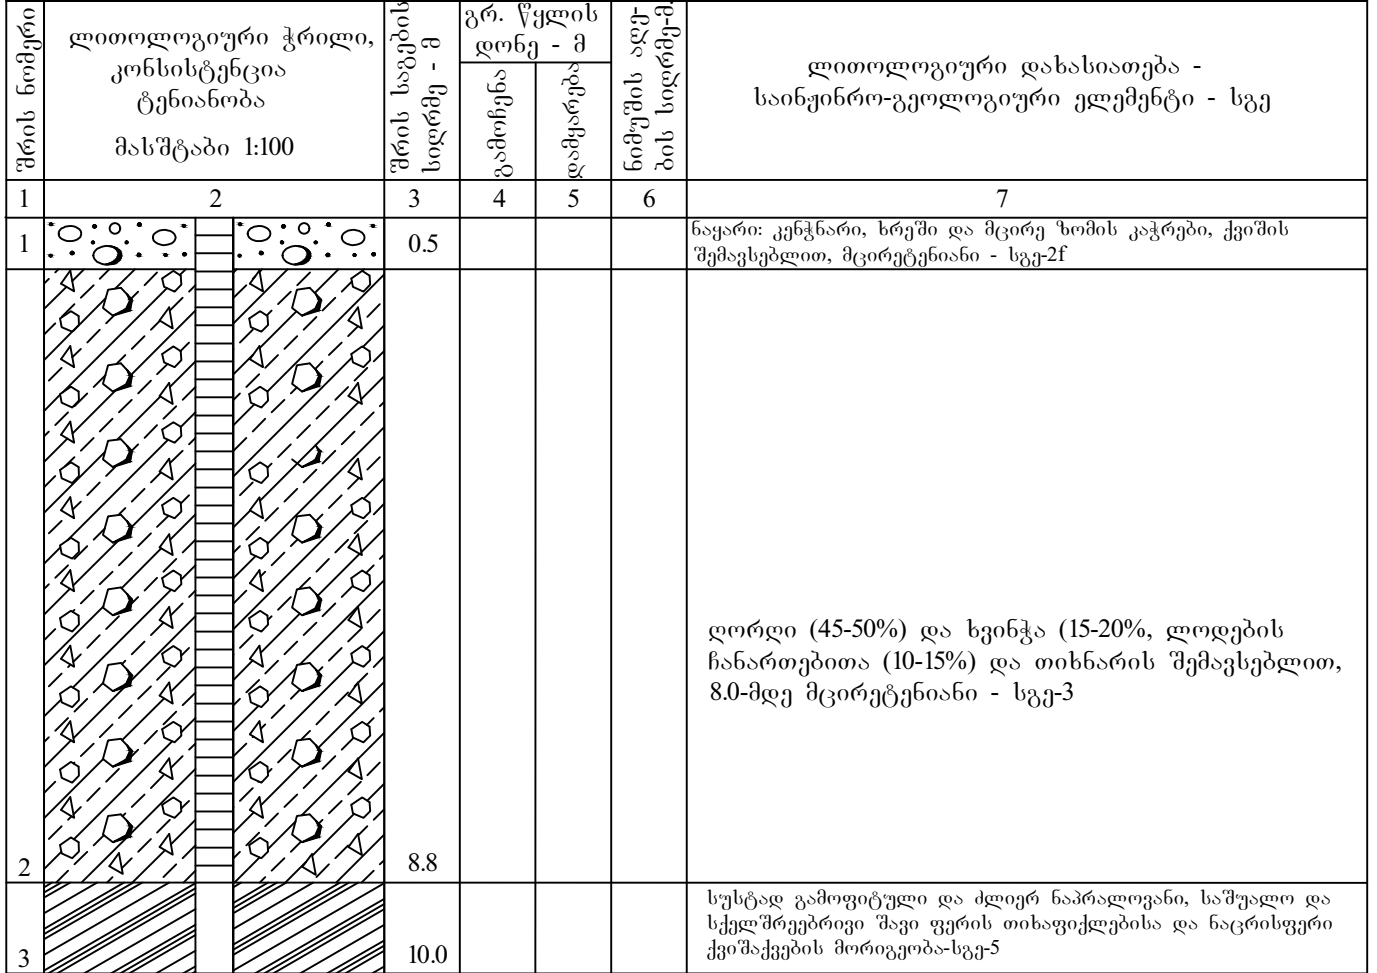 შრის ნომერი
ლითოლოგიური ჭრილი,
კონსისტენცია
ტენიანობა
მასშტაბი 1:100
შრის საგების
სიღრმე - მ
გრ. წყლის
დონე - მ
გამოჩენა
დამყარება
ნიმუშის აღე-
ბის სიღრმე-მ.
ლითოლოგიური დახასიათება -
საინჟინრო-გეოლოგიური ელემენტი - სგე
1 2 3 4 5 6 7
1 0.5
ნაყარი: კენჭნარი, ხრეში და მცირე ზომის კაჭრები, ქვიშის
შემავსებლით, მცირეტენიანი - სგე-2f
2 8.8
ღორღი (45-50%) და ხვინჭა (15-20%, ლოდების
ჩანართებითა (10-15%) და თიხნარის შემავსებლით,
8.0-მდე მცირეტენიანი - სგე-3
3 10.0
სუსტად გამოფიტული და ძლიერ ნაპრალოვანი, საშუალო და
სქელშრეებრივი შავი ფერის თიხაფიქლებისა და ნაცრისფერი
ქვიშაქვების მორიგეობა-სგე-5